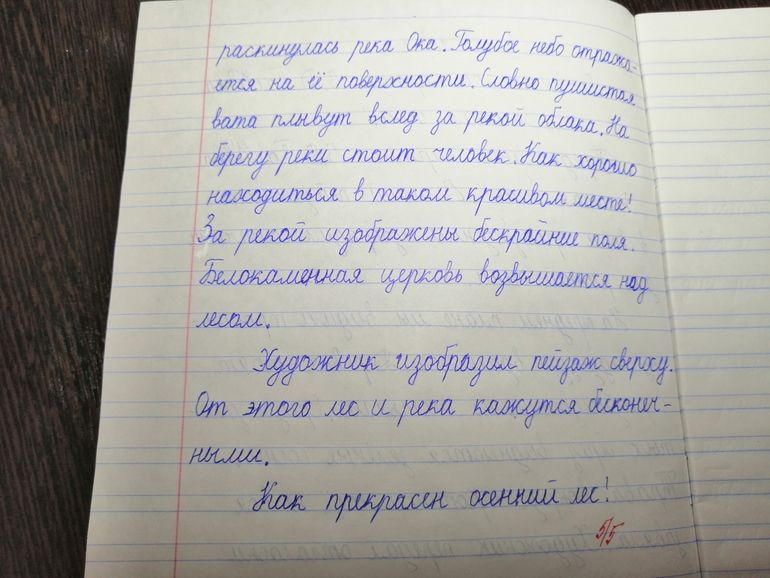 раскинулась река Ока. Голубое небо отража-
ется на её поверхности. Словно пушистая
вата плывут вслед за рекой облака. На
берегу реки стоит человек. Как хорошо
находиться в таком красивом месте!
За рекой изображены бескрайние поля.
Белокаменная церковь возвышается над
лесом.
Художник изобразил пейзаж сверху.
От этого лес и река кажутся бесконеч-
ными.
Как прекрасен осенний лес!
5/5